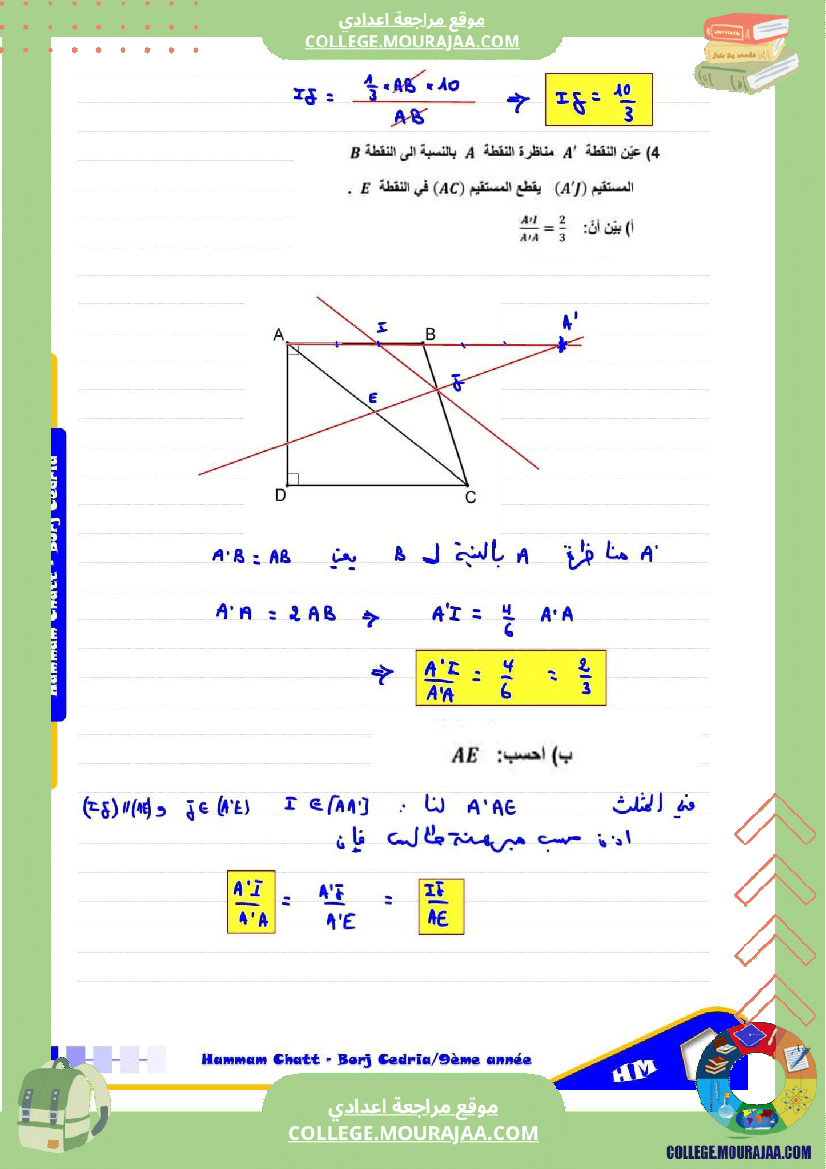 موقع مراجعة اعدادي
COLLEGE.MOURAJAA.COM
IJ = 1/3 × AB × 10 / AB ⇒ IJ = 10/3
4) عيّن النقطة A′ مناظرة النقطة A بالنسبة الى النقطة B
المستقيم (A′J) يقطع المستقيم (AC) في النقطة E .
أ) بيّن أنّ: A′I/A′A = 2/3
A I B A'
J
E
D C
A' مناظرة A بالنسبة لـ B يعني A'B = AB
A'A = 2AB ⇒ A'I = 4/6 A'A
⇒ A'I/A'A = 4/6 = 2/3
ب) احسب: AE
في المثلث A'AE لنا : I ∈ [AA'] J ∈ (A'E) و (IJ) // (AE)
اذن حسب مبرهنة طالس فإن
A'I/A'A = A'J/A'E = IJ/AE
Hammam Chatt - Borj Cedria
Hammam Chatt - Borj Cedria/9ème année
HM
موقع مراجعة اعدادي
COLLEGE.MOURAJAA.COM
COLLEGE.MOURAJAA.COM